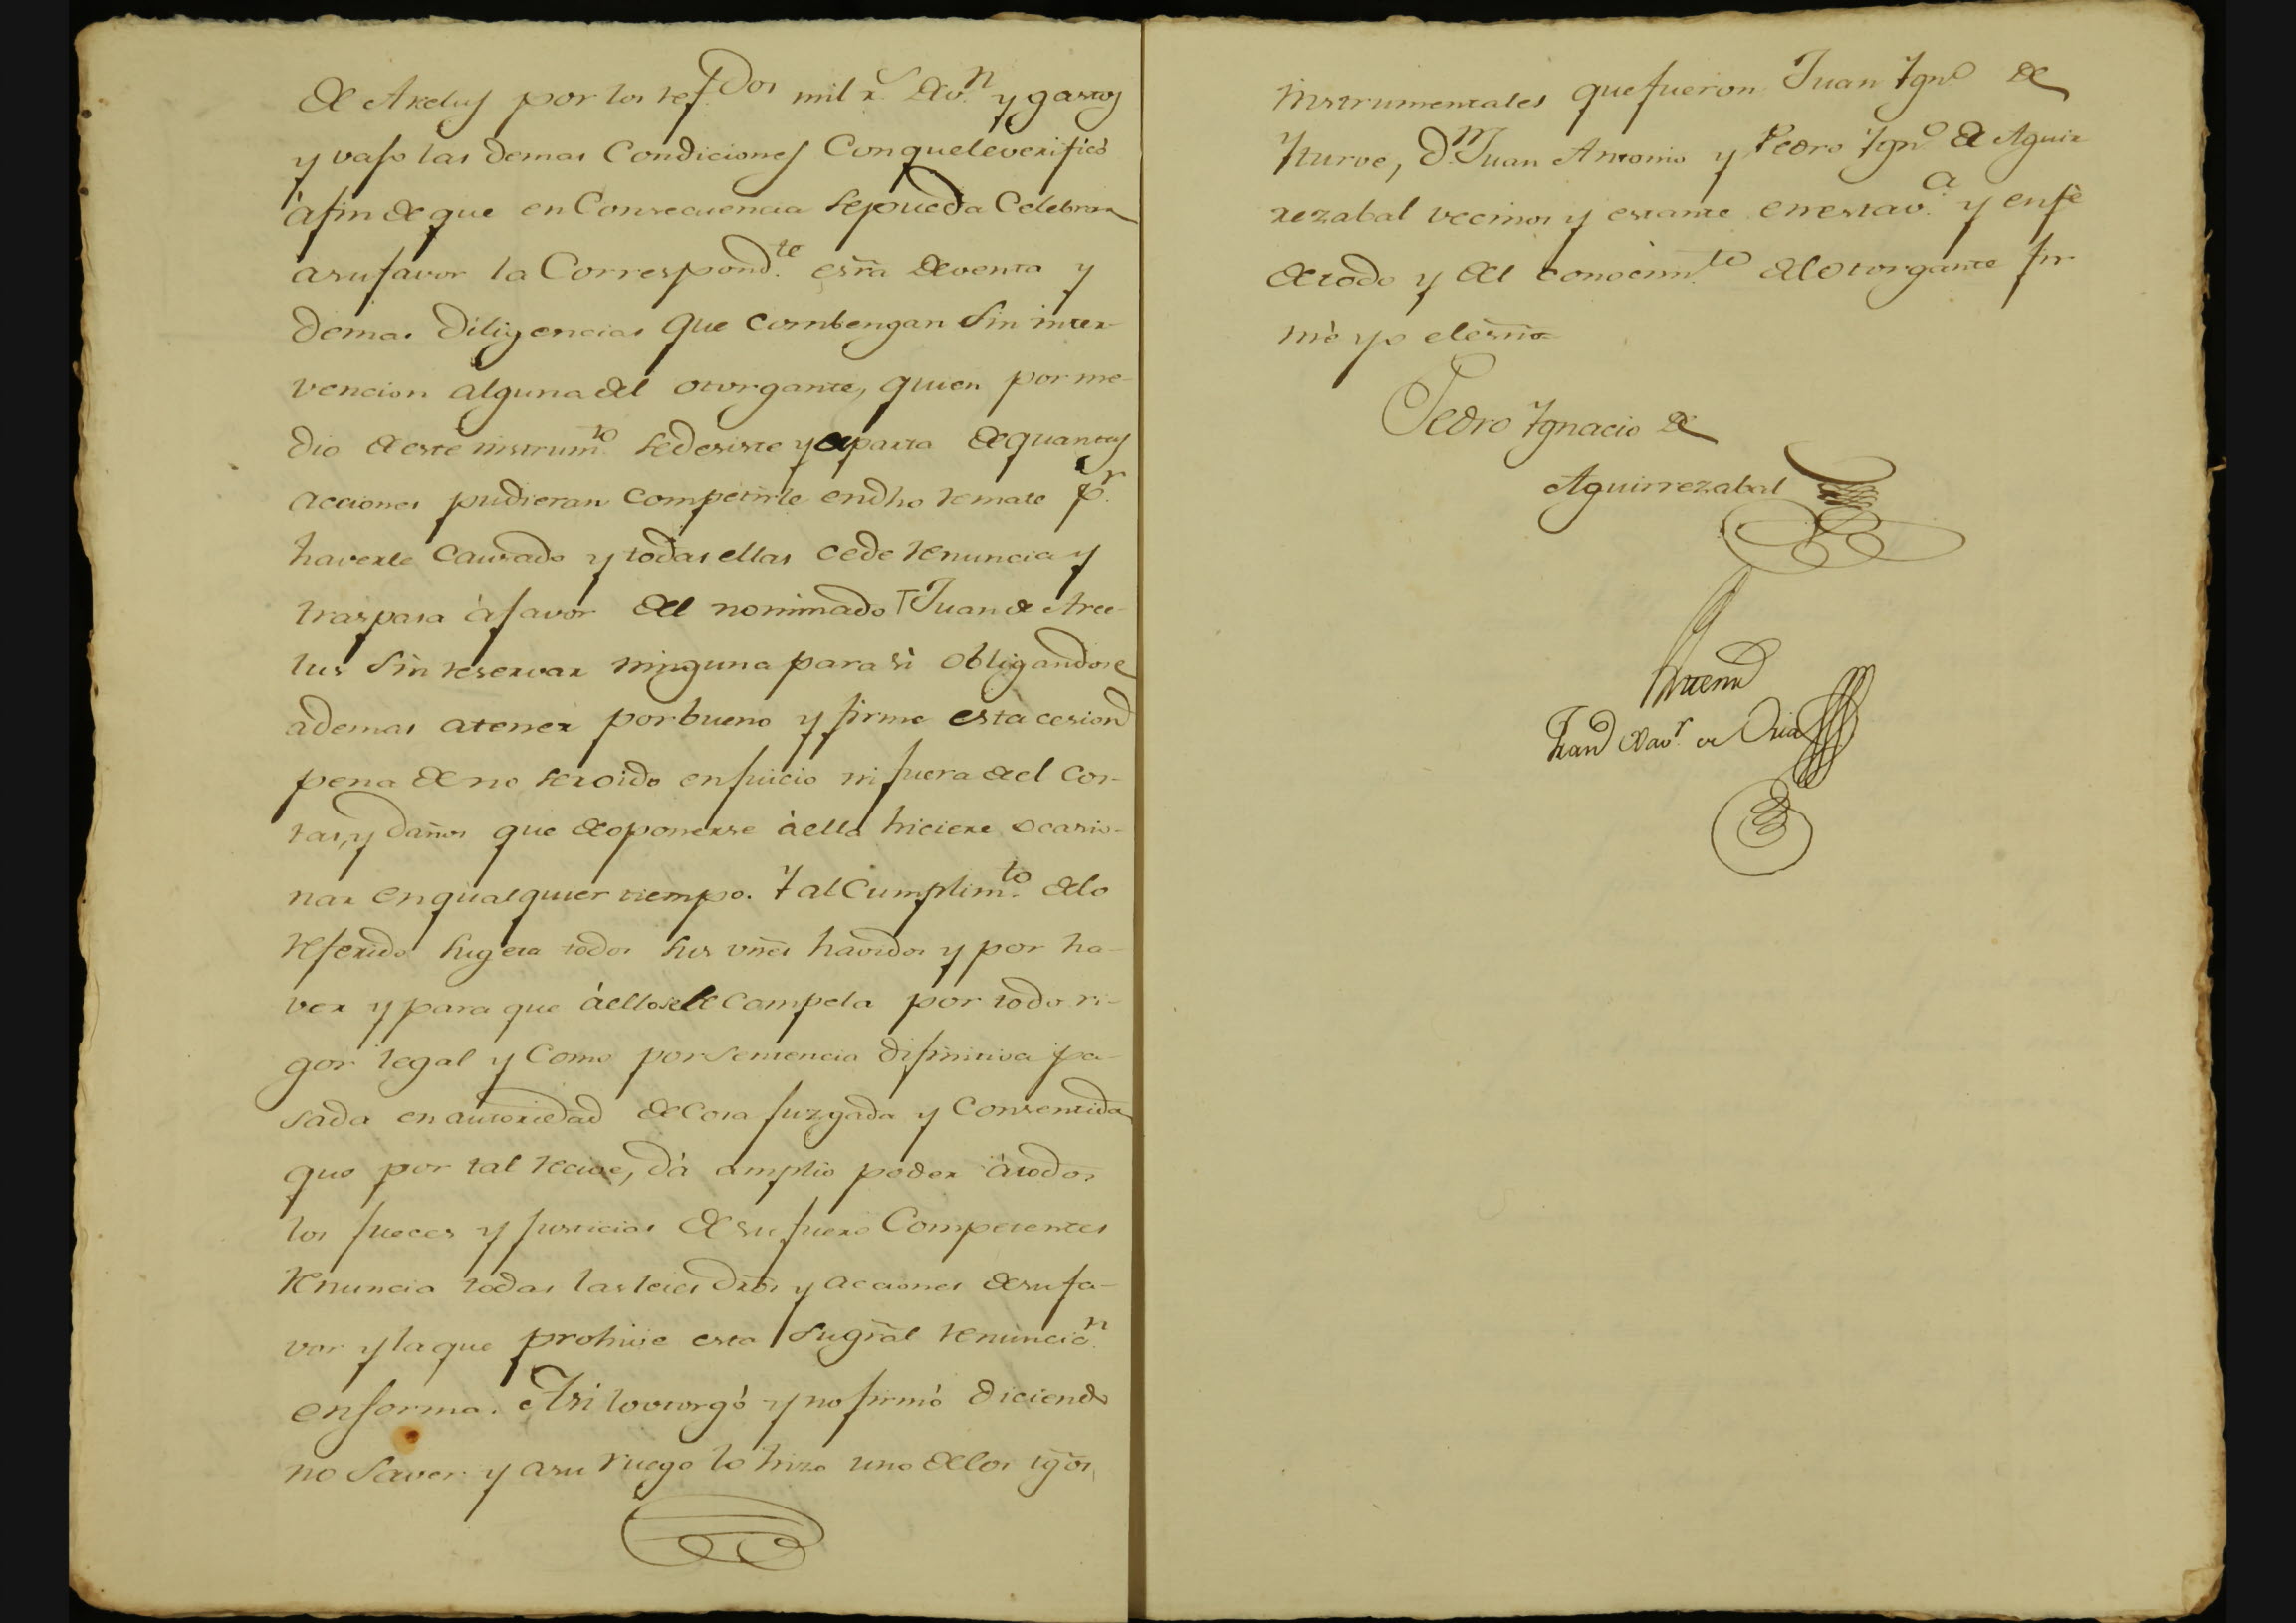 de Arelus por los ref.dos mil r.s de v.n y gastos
y vajo las demas Condiciones Conquele verificó
áfin de que en Consecuencia sepueda Celebrar
asufavor la Correspond.te esrra deventa y
demas diligencias que combengan sin inter-
vencion alguna del otorgante, quien porme-
dio deeste instrum.to sedesiste y aparta dequantas
acciones pudieran competirle endho remate p.r
haverle causado y todas ellas cede renuncia y
traspasa áfavor del nominado Juan de Arre-
lus sin reservar ninguna parasi obligandose
ademas atener porbueno y firme esta cesion
pena de no seroido enjuicio ni fuera del cos-
tas, y daños que deoponerse áella hiciere ocasio-
nar enqualquier tiempo. Y alCumplim.to delo
referido sugeta todos sus vnes havidos y por ha-
ver y para que áello sele compela por todo ri-
gor legal y Como porsentencia difinitiva pa-
sada enautoridad decosa juzgada y Consentida
que por tal recive, dá amplio poder átodos
los jueces y justicias desufuero Competentes
renuncia todas lasleies dros y acciones desufa-
vor ylaque prohive esta sugral renunció.n
enforma. Asi lootorgó y nofirmó diciendo
no saver y asu ruego lo hizo uno delos tgos
instrumentales quefueron Juan Ygn.o de
Yturve, d.n Juan Antonio y Pedro Ygn.o de Aguir
rezabal vecinos y estante enesta v.a y enfé
detodo y del conocim.to delotorgante fir
mé yo elesrro
Pedro Ygnacio de
Aguirrezabal
Antemi
Fran.co Xav.r de Oria